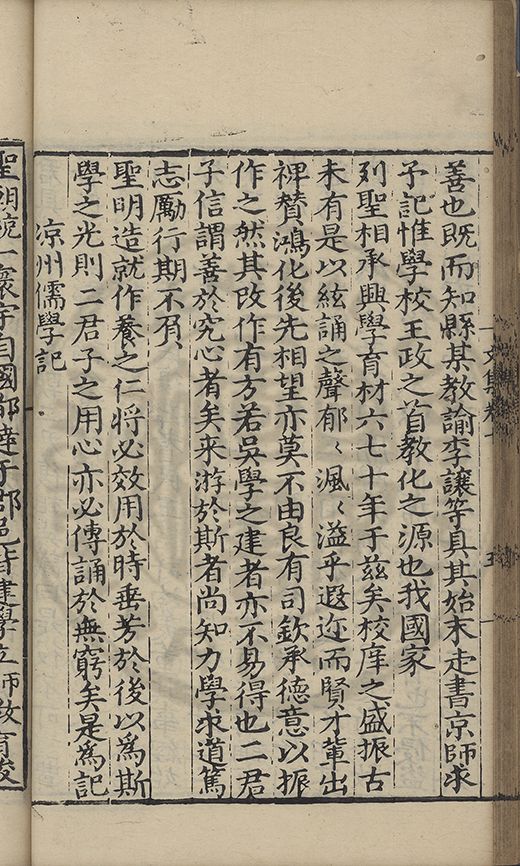 善也既而知縣某教諭李讓等具其始末走書京師求
予記惟學校王政之首教化之源也我國家
列聖相承興學育材六七十年于兹矣校庠之盛振古
未有是以絃誦之聲郁〻渢〻溢乎遐迩而賢才輩出
裨賛鴻化後先相望亦莫不由良有司欽承德意以振
作之然其改作有方若吳學之建者亦不易得也二君
子信謂善於究心者矣来游於斯者尚知力學求道篤
志厲行期不負
聖明造就作養之仁将必效用於時垂芳於後以為斯
學之光則二君子之用心亦必傳誦於無窮矣是為記
凉州儒學記
聖朝統一寰宇自國都達于郡邑皆建學立師教育俊
文集卷